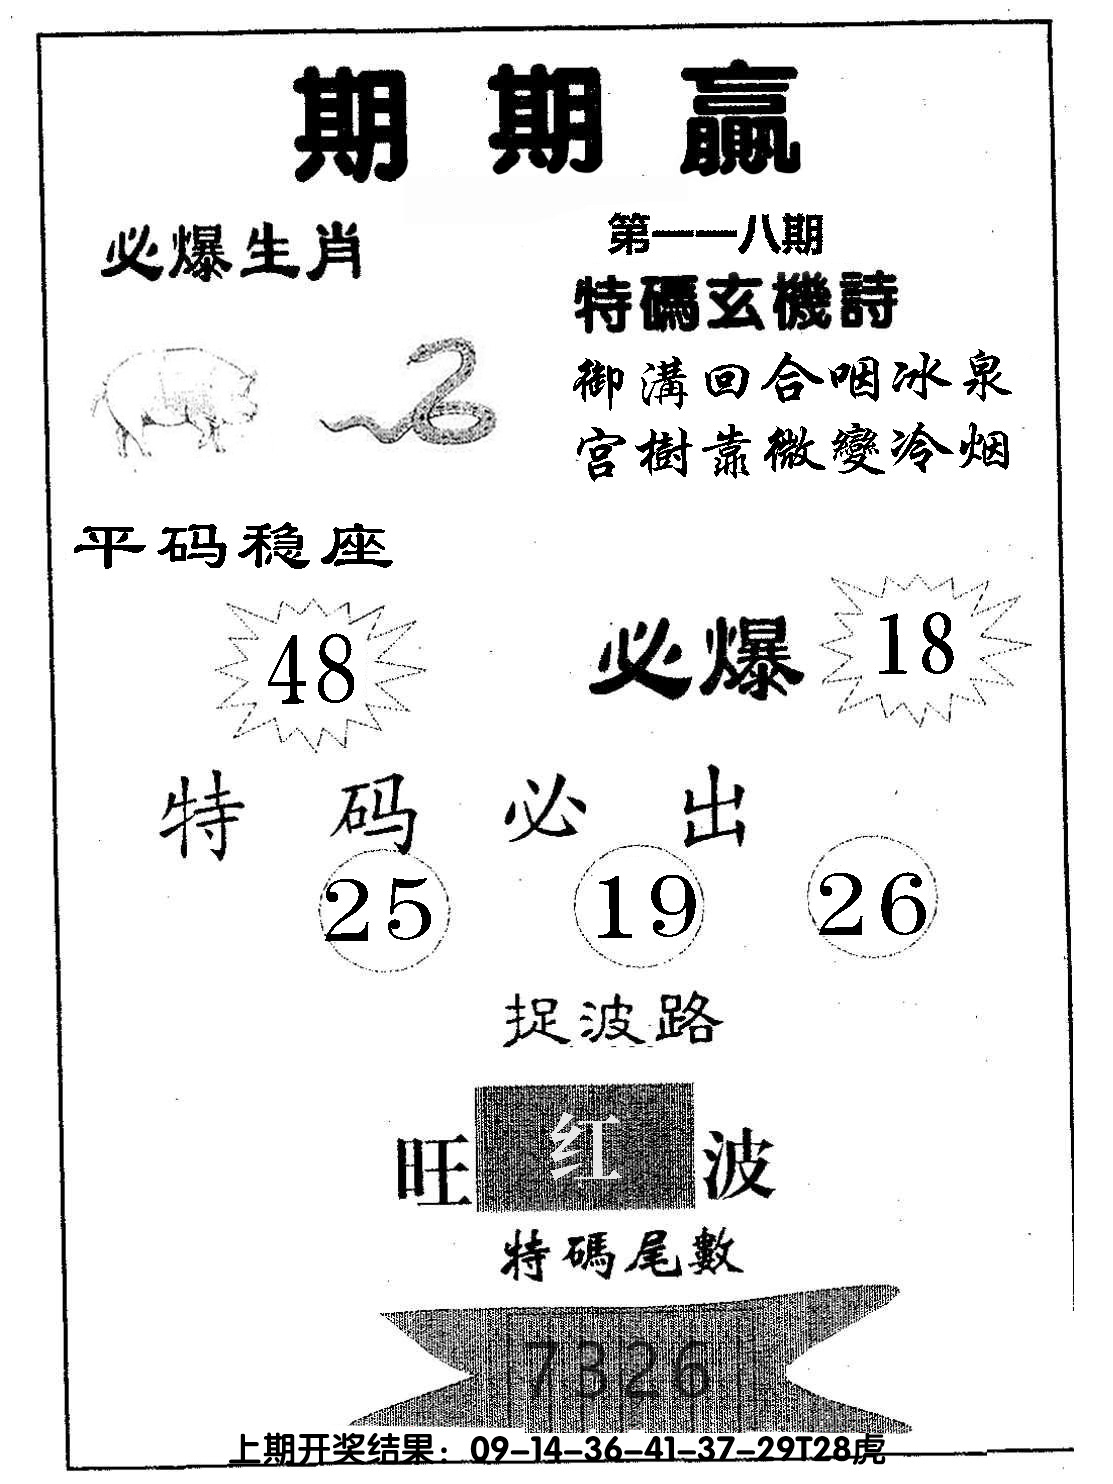 期期赢
必爆生肖
第一一八期
特碼玄機詩
御溝回合咽冰泉
宫樹靠微變冷烟
平码稳座
48
必爆
18
特码必出
25 19 26
捉波路
旺红波
特碼尾數
7326
上期开奖结果：09-14-36-41-37-29T28虎